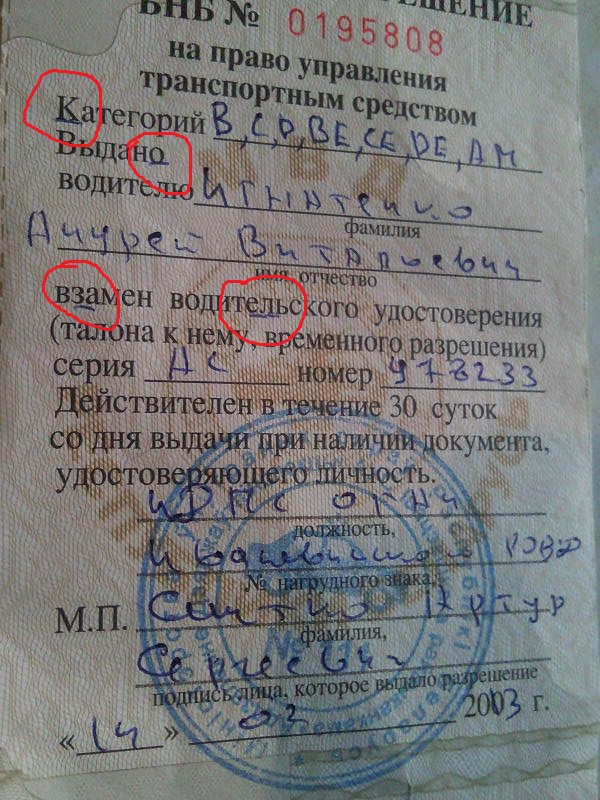 БНБ № 0195808
на право управления
транспортным средством
Категорий B, C, D, BE, CE, DE, AM
Выдано
водителю
фамилия
Андрей Витальевич
имя, отчество
взамен водительского удостоверения
(талона к нему, временного разрешения)
серия АС номер 978233
Действителен в течение 30 суток
со дня выдачи при наличии документа,
удостоверяющего личность.
ИДПС ОГАИ
должность,
РОВД
№ нагрудного знака,
М.П. Артур
фамилия,
Сергеевич
подпись лица, которое выдало разрешение
«14» 02 2013 г.